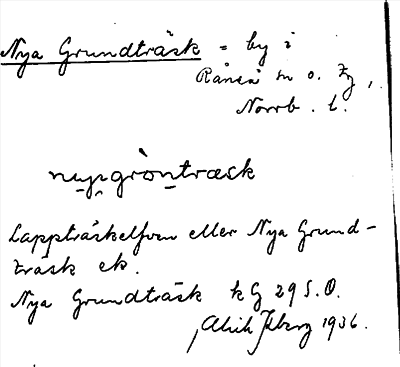 Nya Grundträsk = by i
Råneå sn o. tg,
Norrb. l.
nyagròntræsk
Lappträskelfven eller Nya Grund-
träsk ek.
Nya Grundträsk kG 29 S.O.
1936.